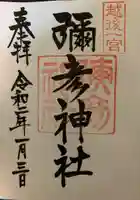 越後一宮
奉拝
彌彦神社
令和二年一月三日